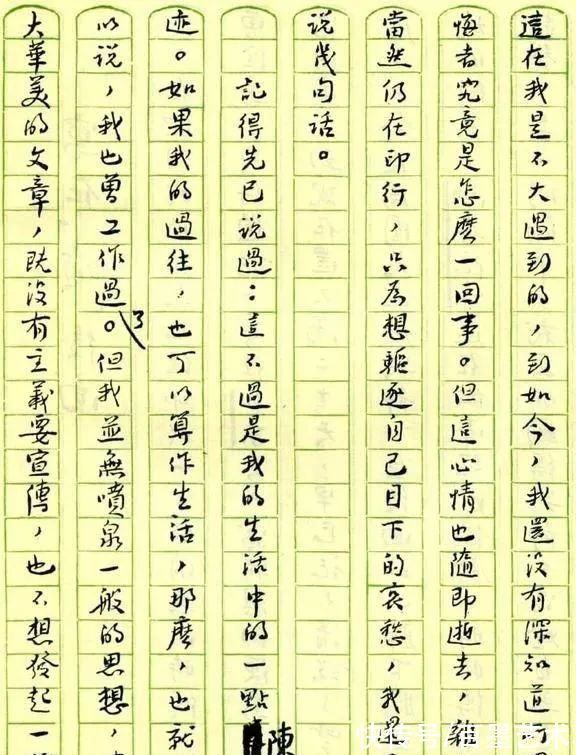 這在我是不大遇到的，到如今，我還没有深知道所
悔者究竟是怎麼一回事。但這心情也隨即逝去，雜
當然仍在印行，只為想驅逐自己目下的哀愁，我還
说幾句话。
記得先已说過：這不過是我的生活中的一點陳
迹。如果我的過往，也可以算作生活，那麼，也就
以说，我也曾工作過了。但我並無噴泉一般的思想，
大華美的文章，既没有主義要宣傳，也不想發起一